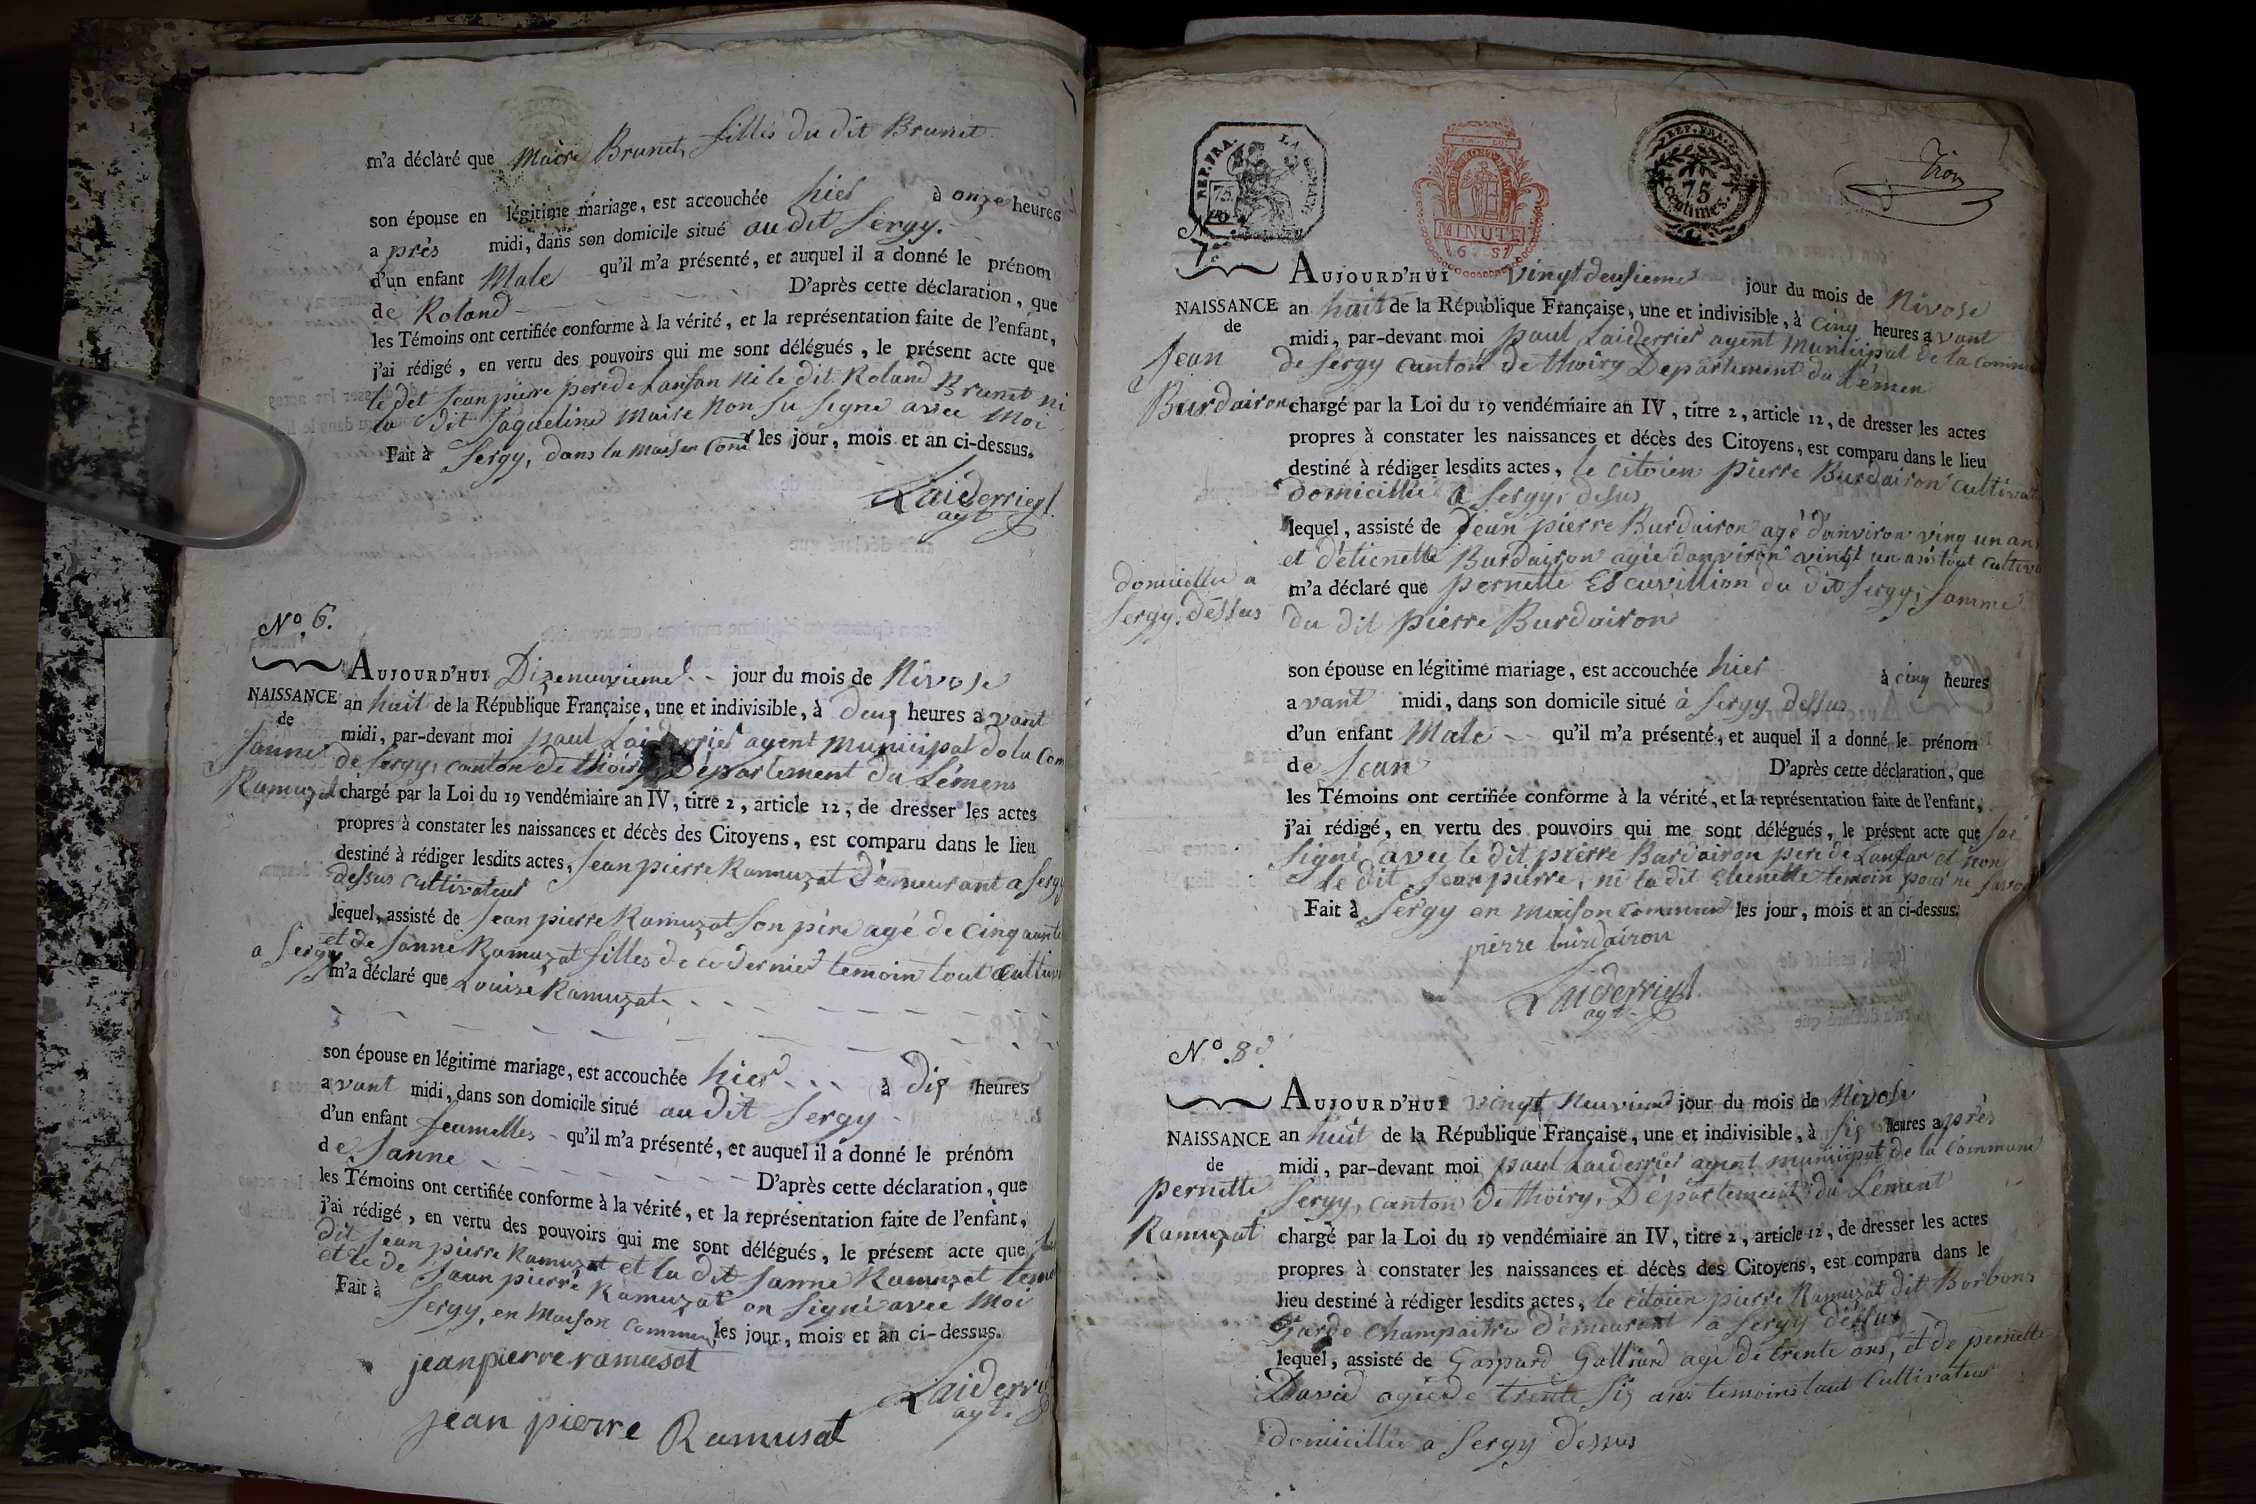 m'a déclaré que Maire Brunet, filles du dit Brunet
son épouse en légitime mariage, est accouchée hier à onze heures
après midi, dans son domicile situé au dit Sergy.
d'un enfant Male qu'il m'a présenté, et auquel il a donné le prénom
de Roland D'après cette déclaration, que
les Témoins ont certifiée conforme à la vérité, et la représentation faite de l'enfant,
j'ai rédigé, en vertu des pouvoirs qui me sont délégués, le présent acte que
le dit Jean pierre pere de Lanfan ni le dit Roland Brunet ni
la dit Jaqueline Maire non su signe avec Moi
Fait à Sergy, dans la maison com les jour, mois et an ci-dessus.
Laiderrier
agt
No. 6.
AUJOURD'HUI Dizeneuvieme jour du mois de Nivose
NAISSANCE an huit de la République Française, une et indivisible, à deux heures avant
de
midi, par-devant moi paul Laiderrier agent municipal de la Com
Janne de Sergy, canton de thoiry, Département du Lémens
Ramuzat chargé par la Loi du 19 vendémiaire an IV, titre 2, article 12, de dresser les actes
propres à constater les naissances et décès des Citoyens, est comparu dans le lieu
destiné à rédiger lesdits actes, Jean pierre Ramuzat démeurant a Sergy
dessus cultivateur
lequel, assisté de Jean pierre Ramuzat son père agé de cinquante
a Sergy et de Janne Ramuzat filles de ce dernier temoin tout cultiv
m'a déclaré que Louise Ramuzat
son épouse en légitime mariage, est accouchée hier à dix heures
avant midi, dans son domicile situé au dit Sergy
d'un enfant feumelles qu'il m'a présenté, et auquel il a donné le prénom
de Janne D'après cette déclaration, que
les Témoins ont certifiée conforme à la vérité, et la représentation faite de l'enfant,
j'ai rédigé, en vertu des pouvoirs qui me sont délégués, le présent acte que le
dit Jean pierre Ramuzat et la dit Janne Ramuzat
et le de Jean pierre Ramuzat on signé avec Moi
Fait à Sergy, en Maison Commun les jour, mois et an ci-dessus.
jeanpierre ramusat
Laiderri
agt.
jean pierre Ramusat
REP. FRA.
75
MINUTE
REP. FRA.
75
centimes.
7e
AUJOURD'HUI vingt deusieme jour du mois de Nivose
NAISSANCE an huit de la République Française, une et indivisible, à cinq heures avant
de
midi, par-devant moi paul Laiderrier agent municipal de la Commun
Jean de Sergy canton de thoiry Departement du Lémen
Burdairon chargé par la Loi du 19 vendémiaire an IV, titre 2, article 12, de dresser les actes
propres à constater les naissances et décès des Citoyens, est comparu dans le lieu
destiné à rédiger lesdits actes, le citoien pierre Burdairon cultivat
domicillié a Sergy, desus
lequel, assisté de Jean pierre Burdairon agé d'anviron ving un an
et d'étienette Burdairon agée danviron vingt un ans tout cultiva
domicillie a
Sergy. dessus
m'a déclaré que pernette Escuvillion du dit Sergy, famme
du dit pierre Burdairon
son épouse en légitime mariage, est accouchée hier à cinq heures
avant midi, dans son domicile situé à Sergy dessus
d'un enfant Male qu'il m'a présenté, et auquel il a donné le prénom
de Jean D'après cette déclaration, que
les Témoins ont certifiée conforme à la vérité, et la représentation faite de l'enfant,
j'ai rédigé, en vertu des pouvoirs qui me sont délégués, le présent acte que jai
signé avec le dit pierre Burdairon pere de Lanfan et non
le dit Jean pierre, ni la dit Etienette temoin pour ne savoi
Fait à Sergy en maison commun les jour, mois et an ci-dessus.
pierre burdairon
Laiderrier
agt.
No. 8e
AUJOURD'HUI vingt neuvieme jour du mois de Nivose
NAISSANCE an huit de la République Française, une et indivisible, à six heures après
de
midi, par-devant moi paul Laiderrier agent municipal de la Commune
pernette Sergy, canton de thoiry, Département du Lement
Ramuzat chargé par la Loi du 19 vendémiaire an IV, titre 2, article 12, de dresser les actes
propres à constater les naissances et décès des Citoyens, est comparu dans le
lieu destiné à rédiger lesdits actes, le citoien pierre Ramuzat dit Borbon
Garde Champaitre démeurant a Sergy dessus
lequel, assisté de Gaspard Galliard agé de trente ans, et de pernette
David agée de trente six ans temoins tout cultivateur
domicillié a Sergy dessus